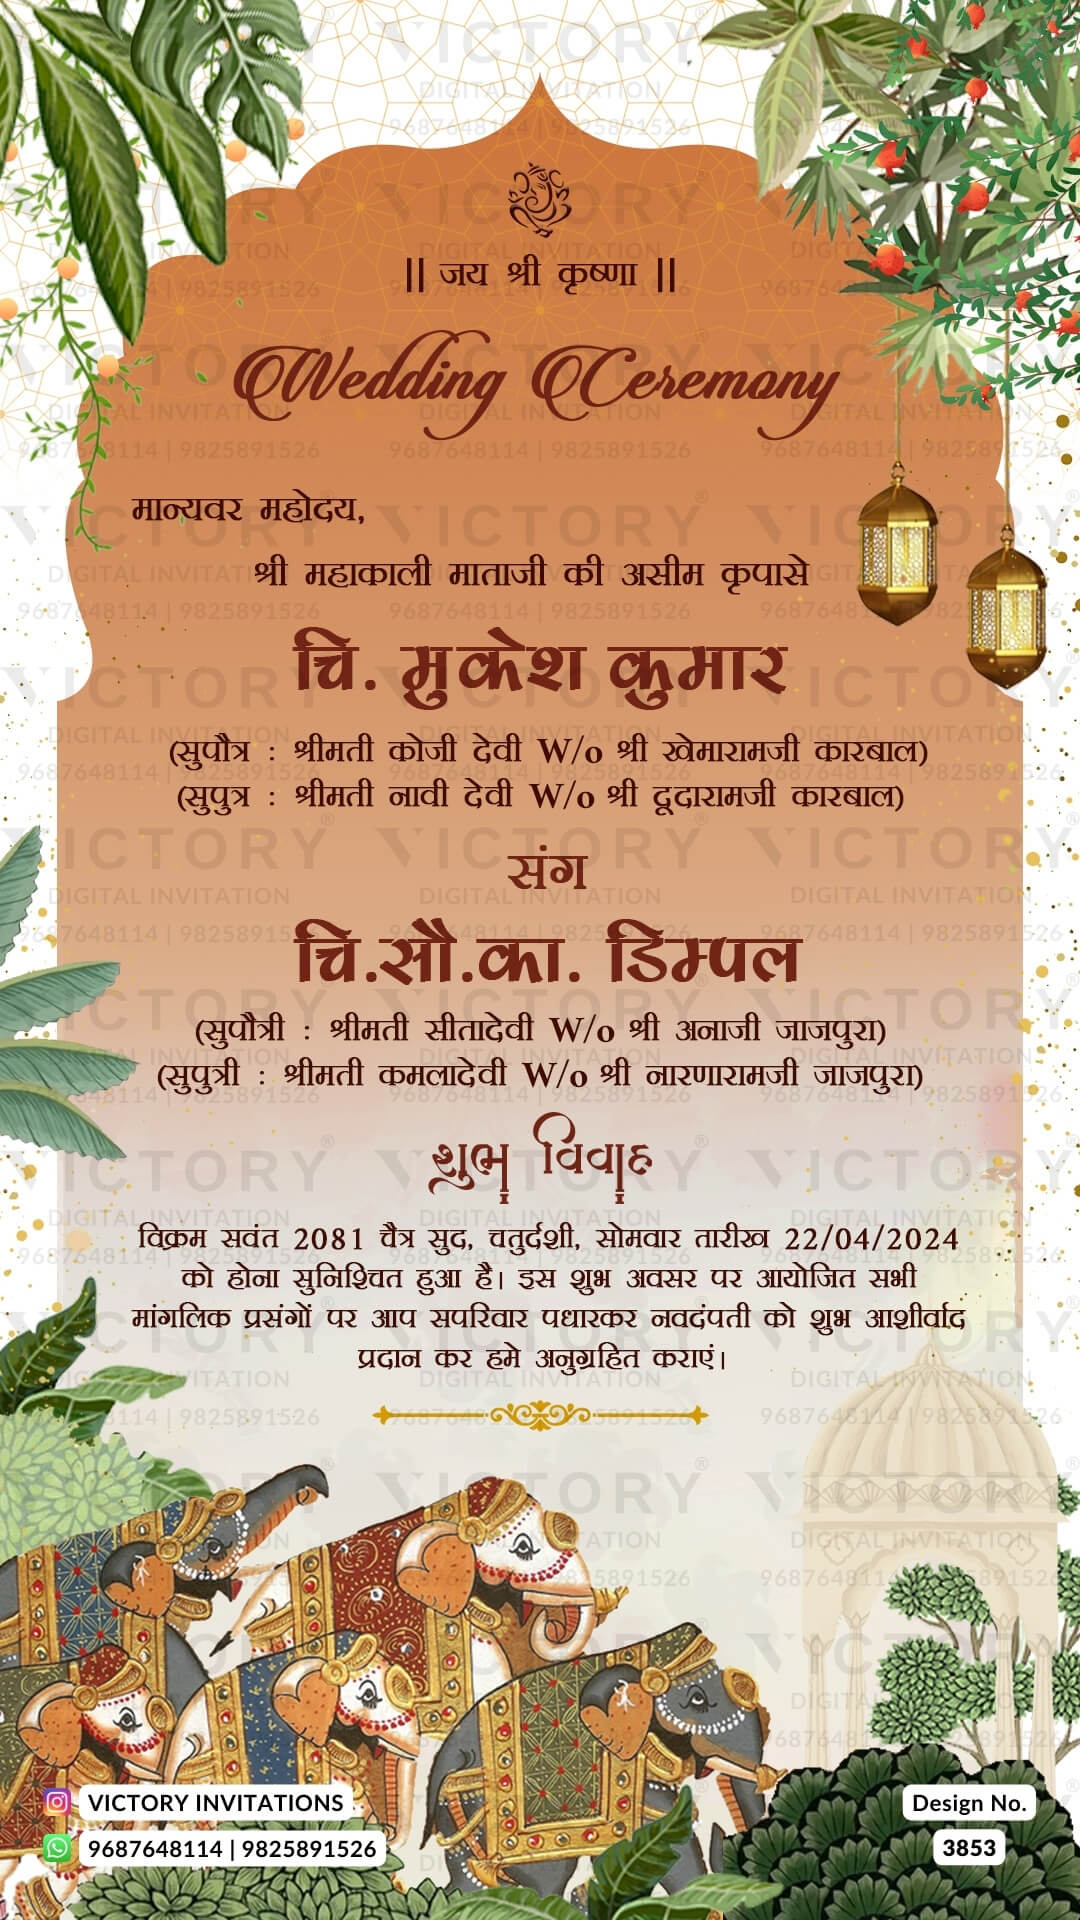 || जय श्री कृष्णा ||
Wedding Ceremony
मान्यवर महोदय,
श्री महाकाली माताजी की असीम कृपासे
चि. मुकेश कुमार
(सुपौत्र : श्रीमती कोजी देवी W/o श्री खेमारामजी कारबाल)
(सुपुत्र : श्रीमती नावी देवी W/o श्री दूदारामजी कारबाल)
संग
चि.सौ.का. डिम्पल
(सुपौत्री : श्रीमती सीतादेवी W/o श्री अनाजी जाजपुरा)
(सुपुत्री : श्रीमती कमलादेवी W/o श्री नारणारामजी जाजपुरा)
शुभ विवाह
विक्रम सवंत 2081 चैत्र सुद, चतुर्दशी, सोमवार तारीख 22/04/2024
को होना सुनिश्चित हुआ है। इस शुभ अवसर पर आयोजित सभी
मांगलिक प्रसंगों पर आप सपरिवार पधारकर नवदंपती को शुभ आशीर्वाद
प्रदान कर हमे अनुग्रहित कराएं।
VICTORY INVITATIONS
9687648114 | 9825891526
Design No.
3853
VICTORY
DIGITAL INVITATION
9687648114 | 9825891526